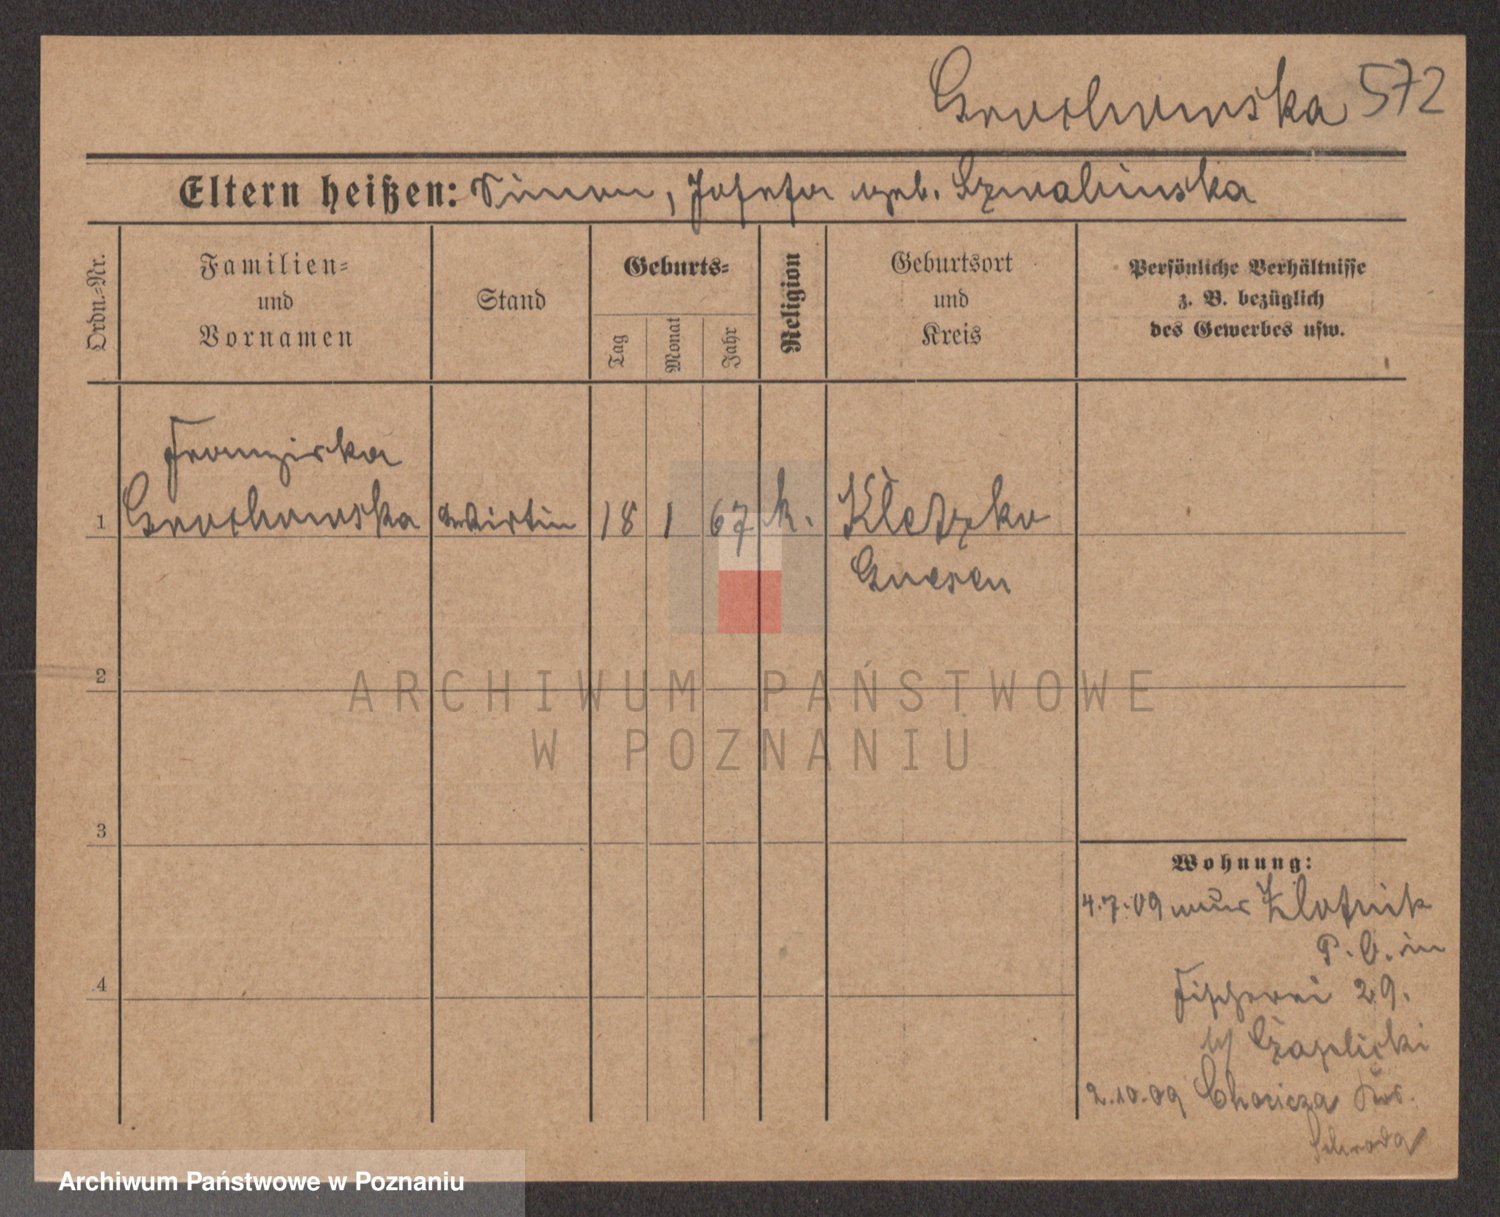 Grochowska 572
Eltern heißen: Simon, Josefa geb. Szwabinska
Ordn.-Nr.
Familien-
und
Vornamen
Stand
Geburts-
Tag
Monat
Jahr
Religion
Geburtsort
und
Kreis
Persönliche Verhältnisse
z. B. bezüglich
des Gewerbes usw.
Franziska
1 Grochowska Wirtin 18 1 67 k. Kletzko
Gnesen
2
3
4
Wohnung:
4.7.09 Zlotnik
P. O. in
Fischerei 29.
b/ Czaplicki
2.10.09 Chocicza Krs.
Schroda
ARCHIWUM PAŃSTWOWE
W POZNANIU
Archiwum Państwowe w Poznaniu